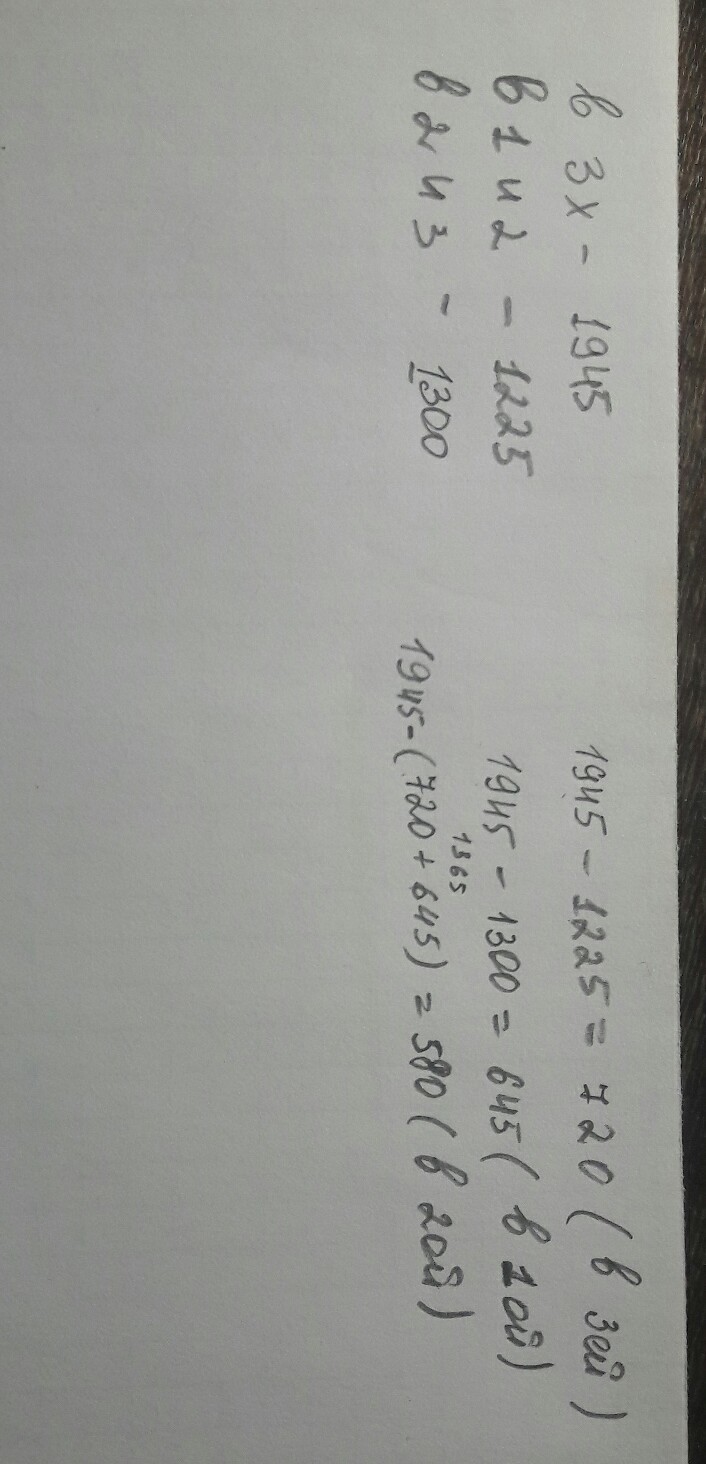 в 3х - 1945
в 1 и 2 - 1225
в 2 и 3 - 1300
1945 - 1225 = 720 (в 3ей)
1945 - 1300 = 645 (в 1ой)
1365
1945 - (720 + 645) = 580 (в 2ой)